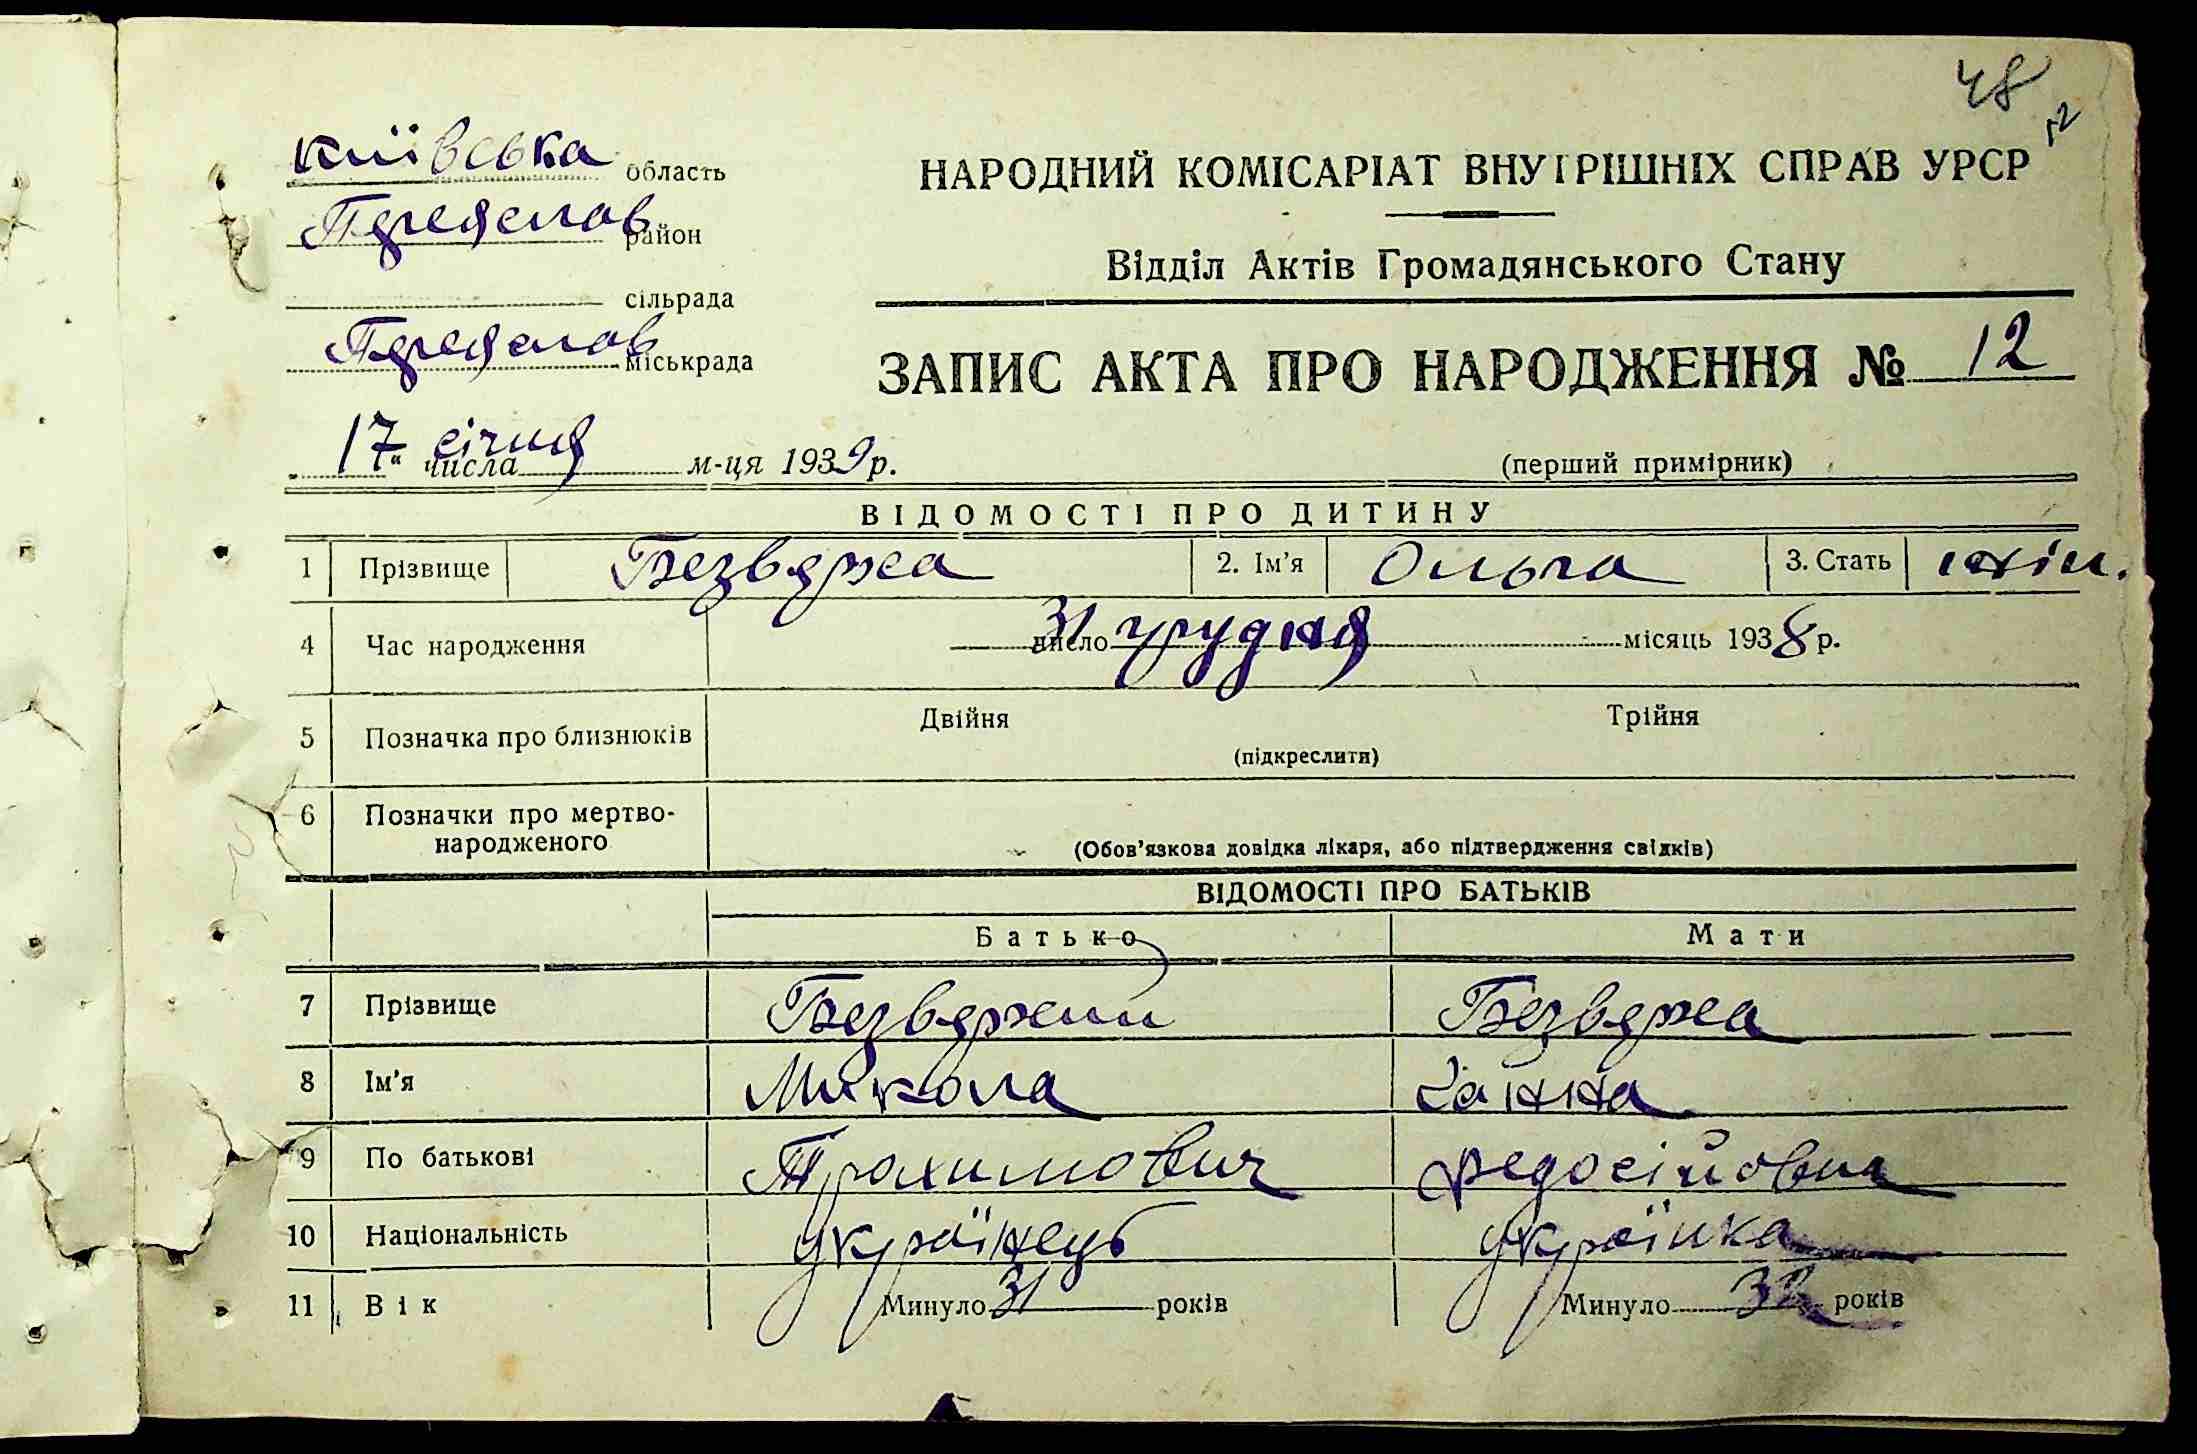 48
12
Київська область
НАРОДНИЙ КОМІСАРІАТ ВНУТРІШНІХ СПРАВ УРСР
район
Відділ Актів Громадянського Стану
сільрада
міськрада
ЗАПИС АКТА ПРО НАРОДЖЕННЯ № 12
„17“ числа січня м-ця 1939 р.
(перший примірник)
ВІДОМОСТІ ПРО ДИТИНУ
1 Прізвище Безвяржа 2. Ім'я Ольга 3. Стать жін.
4 Час народження 31 число грудня місяць 1938 р.
5 Позначка про близнюків Двійня Трійня
(підкреслити)
6 Позначки про мертво-
народженого
(Обов'язкова довідка лікаря, або підтвердження свідків)
ВІДОМОСТІ ПРО БАТЬКІВ
Батько Мати
7 Прізвище Безвяржий Безвяржа
8 Ім'я Микола Ганна
9 По батькові Трохимович Федосійовна
10 Національність українець українка
11 Вік Минуло 31 років Минуло 32 років